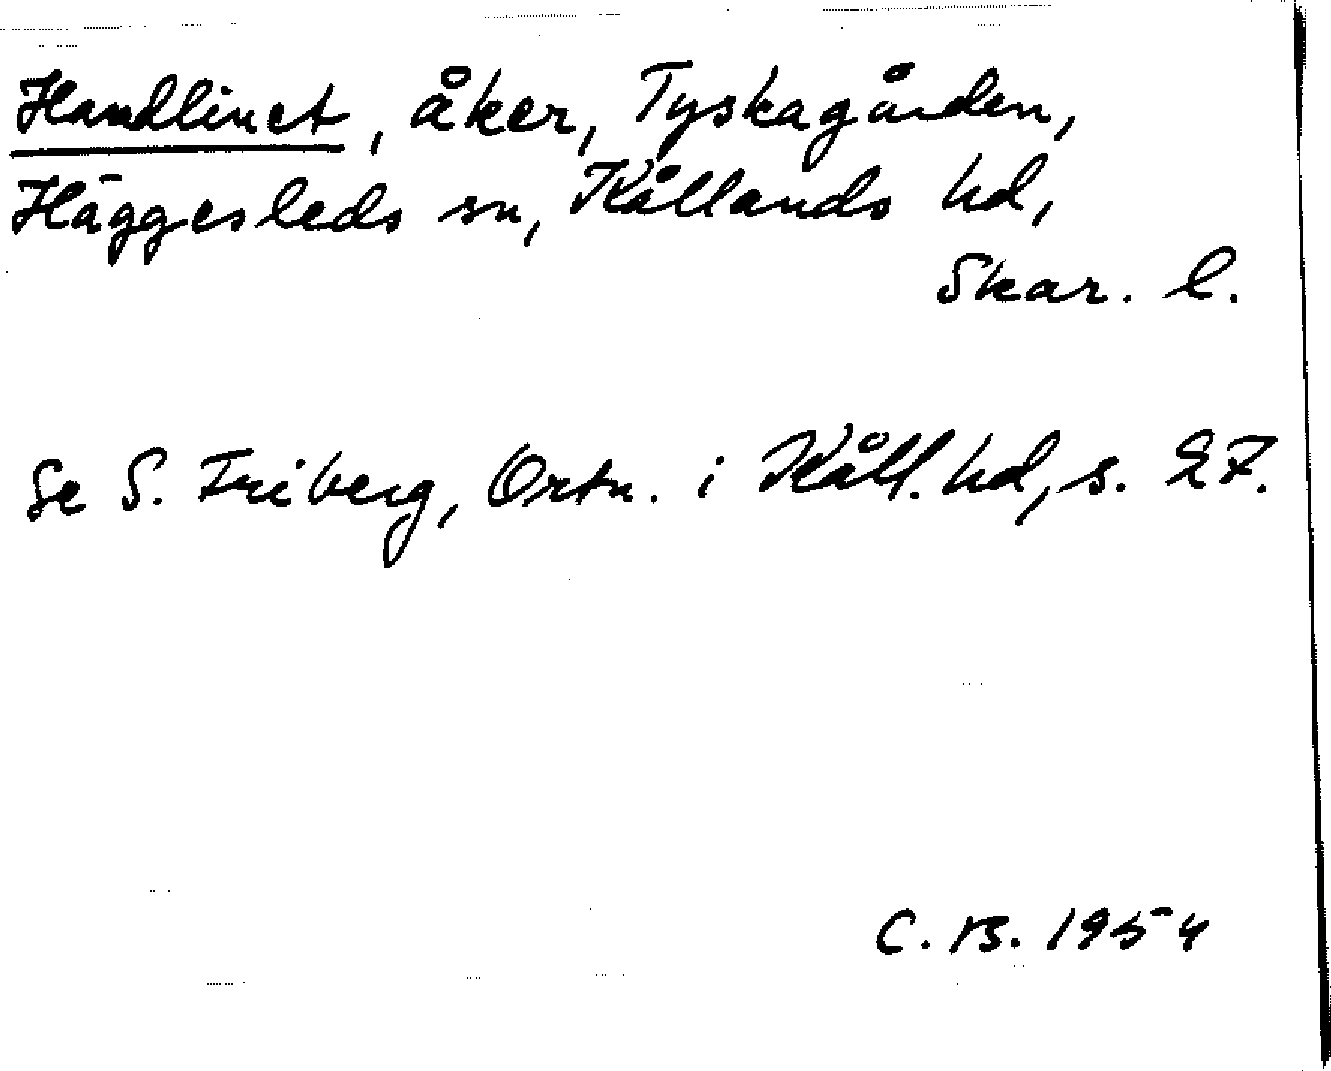 Handlinet, åker, Tyskagården,
Häggesleds sn, Kållands hd,
Skar. l.
Se S. Friberg, Ortn. i Kåll. hd, s. 27.
C. B. 1954